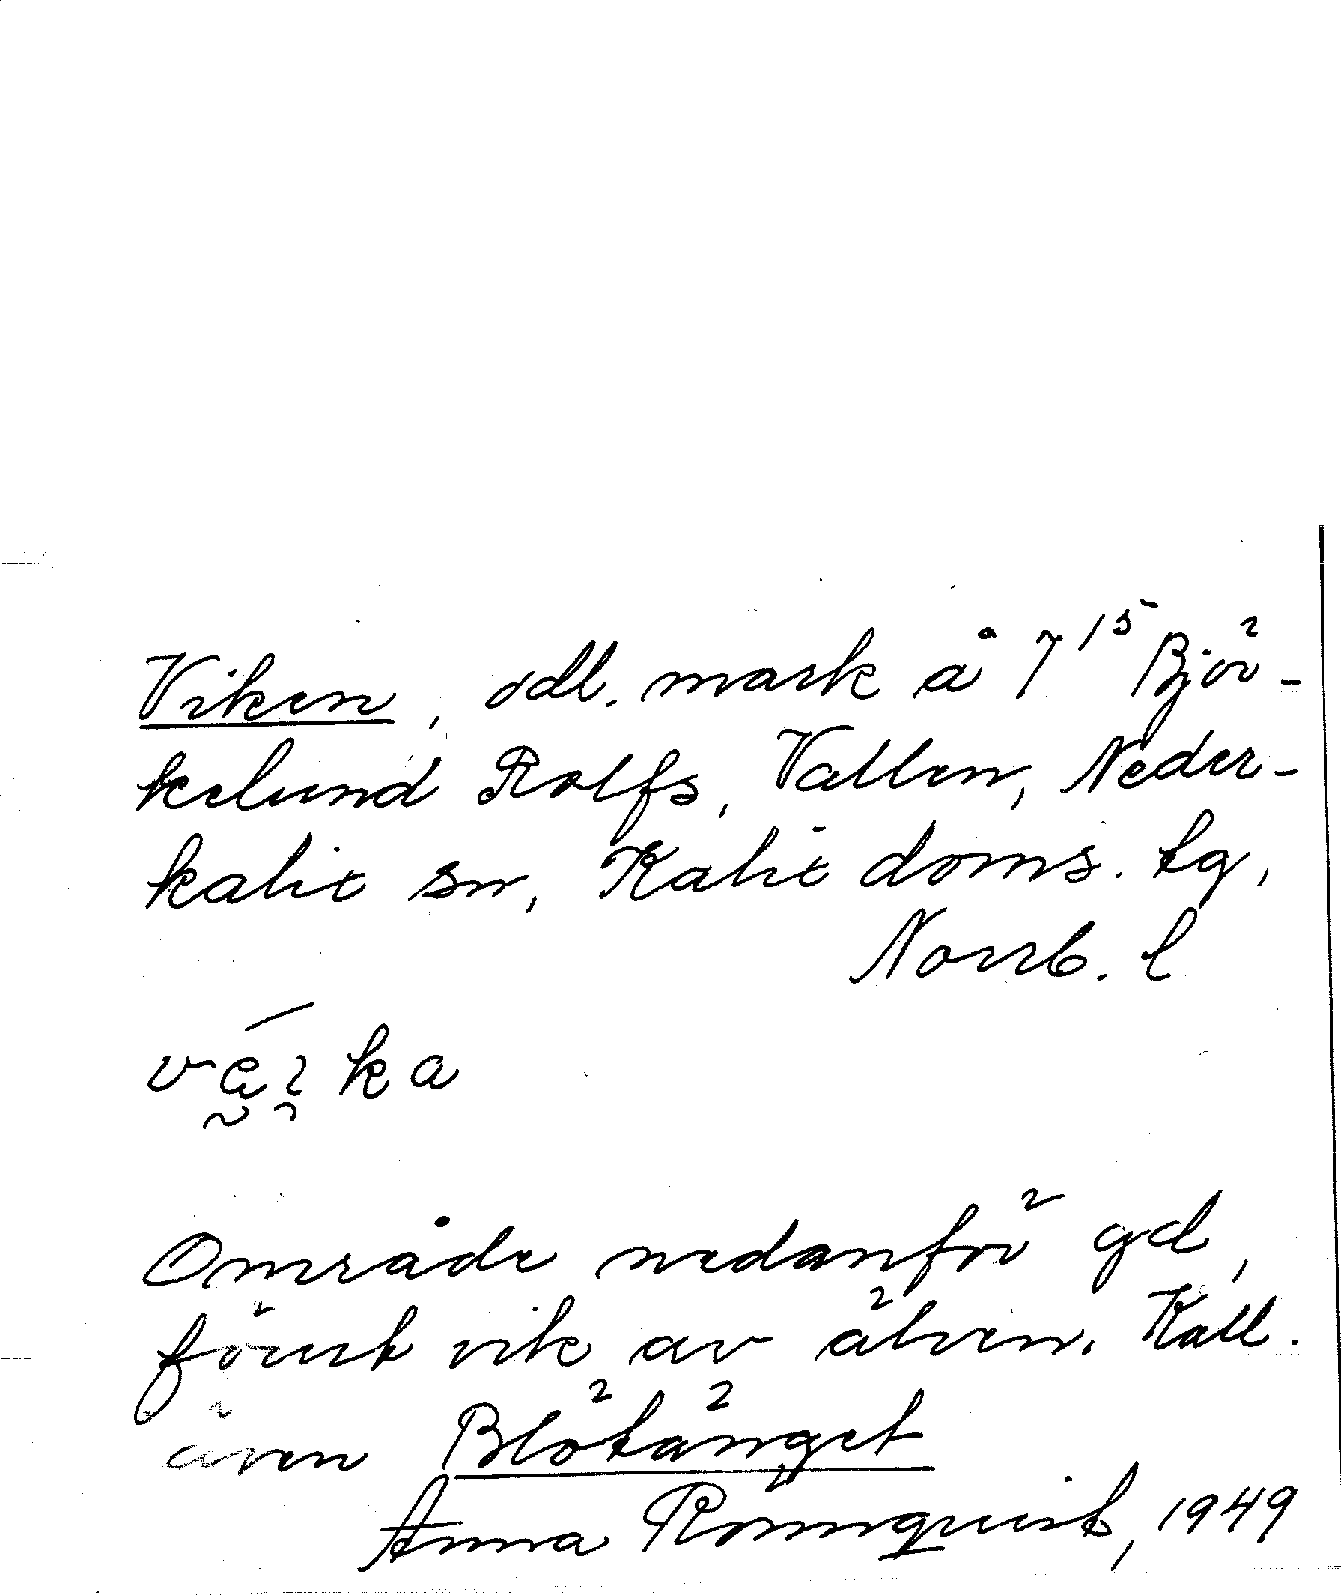 Viken, odl. mark å 7¹⁵ Björ-
kelund Rolfs, Vallen, Neder-
kalix sn, Kalix doms. tg,
Norrb. l
ka
Område nedanför gd,
förut vik av älven. Kall.
även Blötänget
Anna Rönnquist, 1949